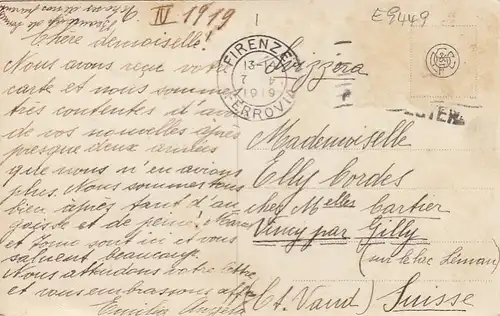 IV 1919
E9449
FIRENZE
13-
7
1919
FERROVIA
Svizzera
Chère demoiselle!
Nous avons reçu votre
carte et nous sommes
très contentes d'avoir
de vos nouvelles après
presque deux années
que nous n'en avions
plus. Nous sommes tous
bien après tant d'an
goisse et de peine!
et sont ici et vous
saluent beaucoup.
Nous attendons votre lettre
et vous embrassons aff
Emilia Angela
Mademoiselle
Elly Cordes
chez Melles Cartier
Vincy par Gilly
(sur le lac Léman)
(Ct. Vaud) Suisse